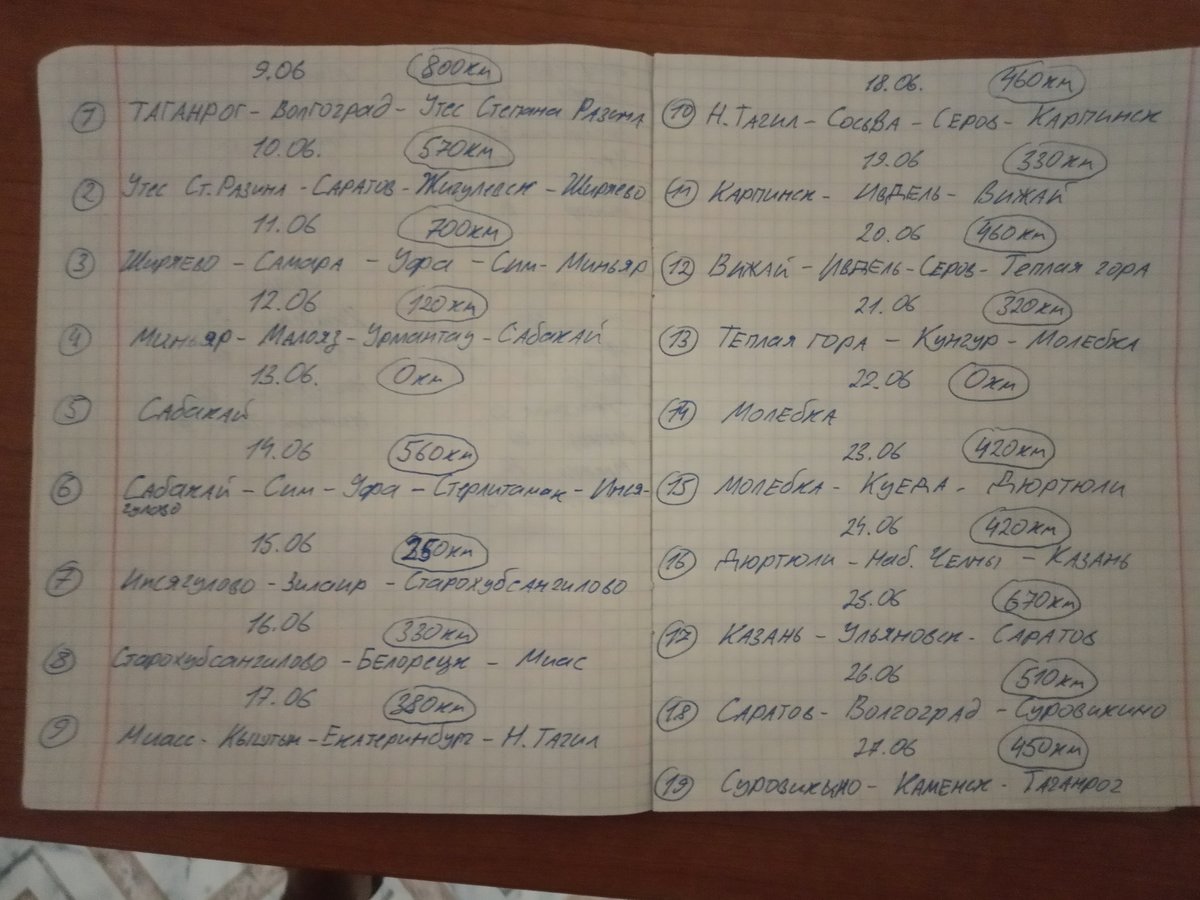 9.06 800км
1 ТАГАНРОГ - ВОЛГОГРАД - УТЕС СТЕПАНА РАЗИНА
10.06. 570км
2 УТЕС СТ. РАЗИНА - САРАТОВ - ЖИГУЛЕВСК - ШИРЯЕВО
11.06 700км
3 ШИРЯЕВО - САМАРА - УФА - СИМ - МИНЬЯР
12.06 120км
4 МИНЬЯР - МАЛОЯЗ - УРМАНТАУ - САБАКАЙ
13.06. 0км
5 САБАКАЙ
14.06 560км
6 САБАКАЙ - СИМ - УФА - СТЕРЛИТАМАК - ИНСЯ-
ГУЛОВО
15.06 250км
7 ИНСЯГУЛОВО - ЗИЛАИР - СТАРОХУБСАНГИЛОВО
16.06 330км
8 СТАРОХУБСАНГИЛОВО - БЕЛОРЕЦК - МИАС
17.06 380км
9 МИАСС - КЫШТЫМ - ЕКАТЕРИНБУРГ - Н. ТАГИЛ
18.06. 460км
10 Н. ТАГИЛ - СОСЬВА - СЕРОВ - КАРПИНСК
19.06 330км
11 КАРПИНСК - ИВДЕЛЬ - ВИЖАЙ
20.06 460км
12 ВИЖАЙ - ИВДЕЛЬ - СЕРОВ - ТЕПЛАЯ ГОРА
21.06 320км
13 ТЕПЛАЯ ГОРА - КУНГУР - МОЛЕБКА
22.06 0км
14 МОЛЕБКА
23.06 420км
15 МОЛЕБКА - КУЕДА - ДЮРТЮЛИ
24.06 420км
16 ДЮРТЮЛИ - НАБ. ЧЕЛНЫ - КАЗАНЬ
25.06 670км
17 КАЗАНЬ - УЛЬЯНОВСК - САРАТОВ
26.06 510км
18 САРАТОВ - ВОЛГОГРАД - СУРОВИКИНО
27.06 450км
19 СУРОВИКИНО - КАМЕНСК - ТАГАНРОГ